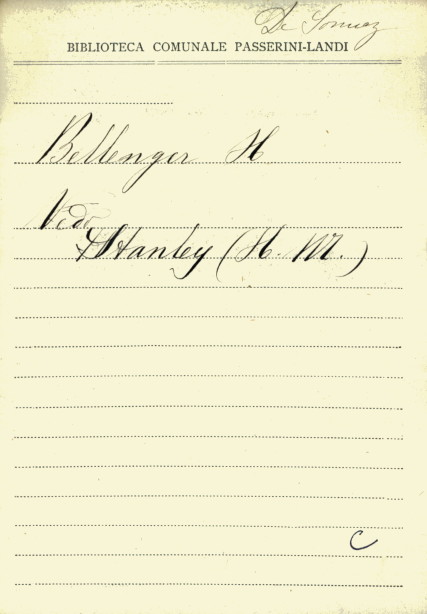 BIBLIOTECA COMUNALE PASSERINI-LANDI
Bellenger H
Vedi
Stanley (H. M.)
C